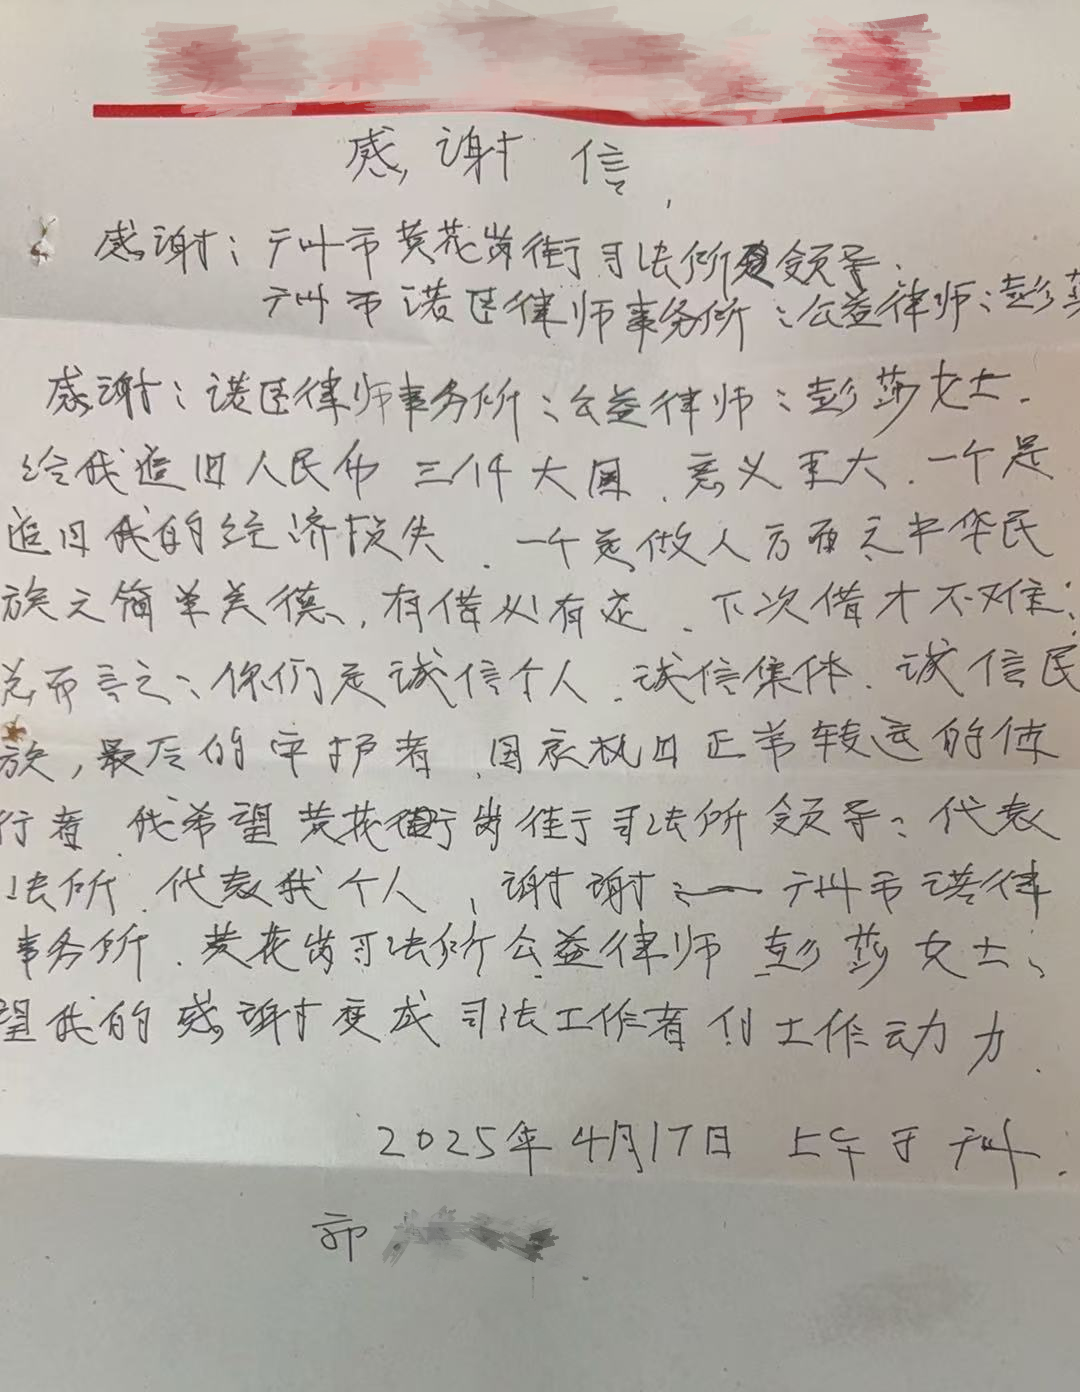 感谢信
感谢：广州市黄花岗街司法所领导、
广州市诺臣律师事务所：公益律师：彭莎
感谢：诺臣律师事务所：公益律师：彭莎女士.
给我追回人民币 三件大 意义重大. 一个是
追回我的经济损失、一个是做人方面之中华民
族之简单美德、有借必有还、下次借才不难；
总而言之：你们是诚信个人、诚信集体、诚信民
族，最后的守护者、国家机 正常转运的体
行者、我希望黄花 岗街司法所领导：代表
法所、代表我个人，谢谢：— 广州市诺律
事务所、黄花岗司法所公益律师 彭莎女士、
望我的感谢变成司法工作者们工作动力.
2025年4月17日 上午于广州.
郭